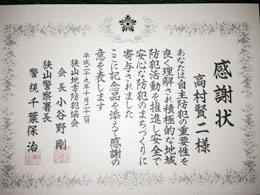 感謝状
高村賢二様
あなたは自主防犯の重要性を
良く理解され積極的な地域
防犯活動を推進し安全で
安心な防犯のまちづくりに
寄与されました
ここに記念品を添えて感謝の
意を表します
平成二十九年十月二十一日
狭山地方防犯協会
会長 小谷野剛
狭山警察署長
警視 千葉保治